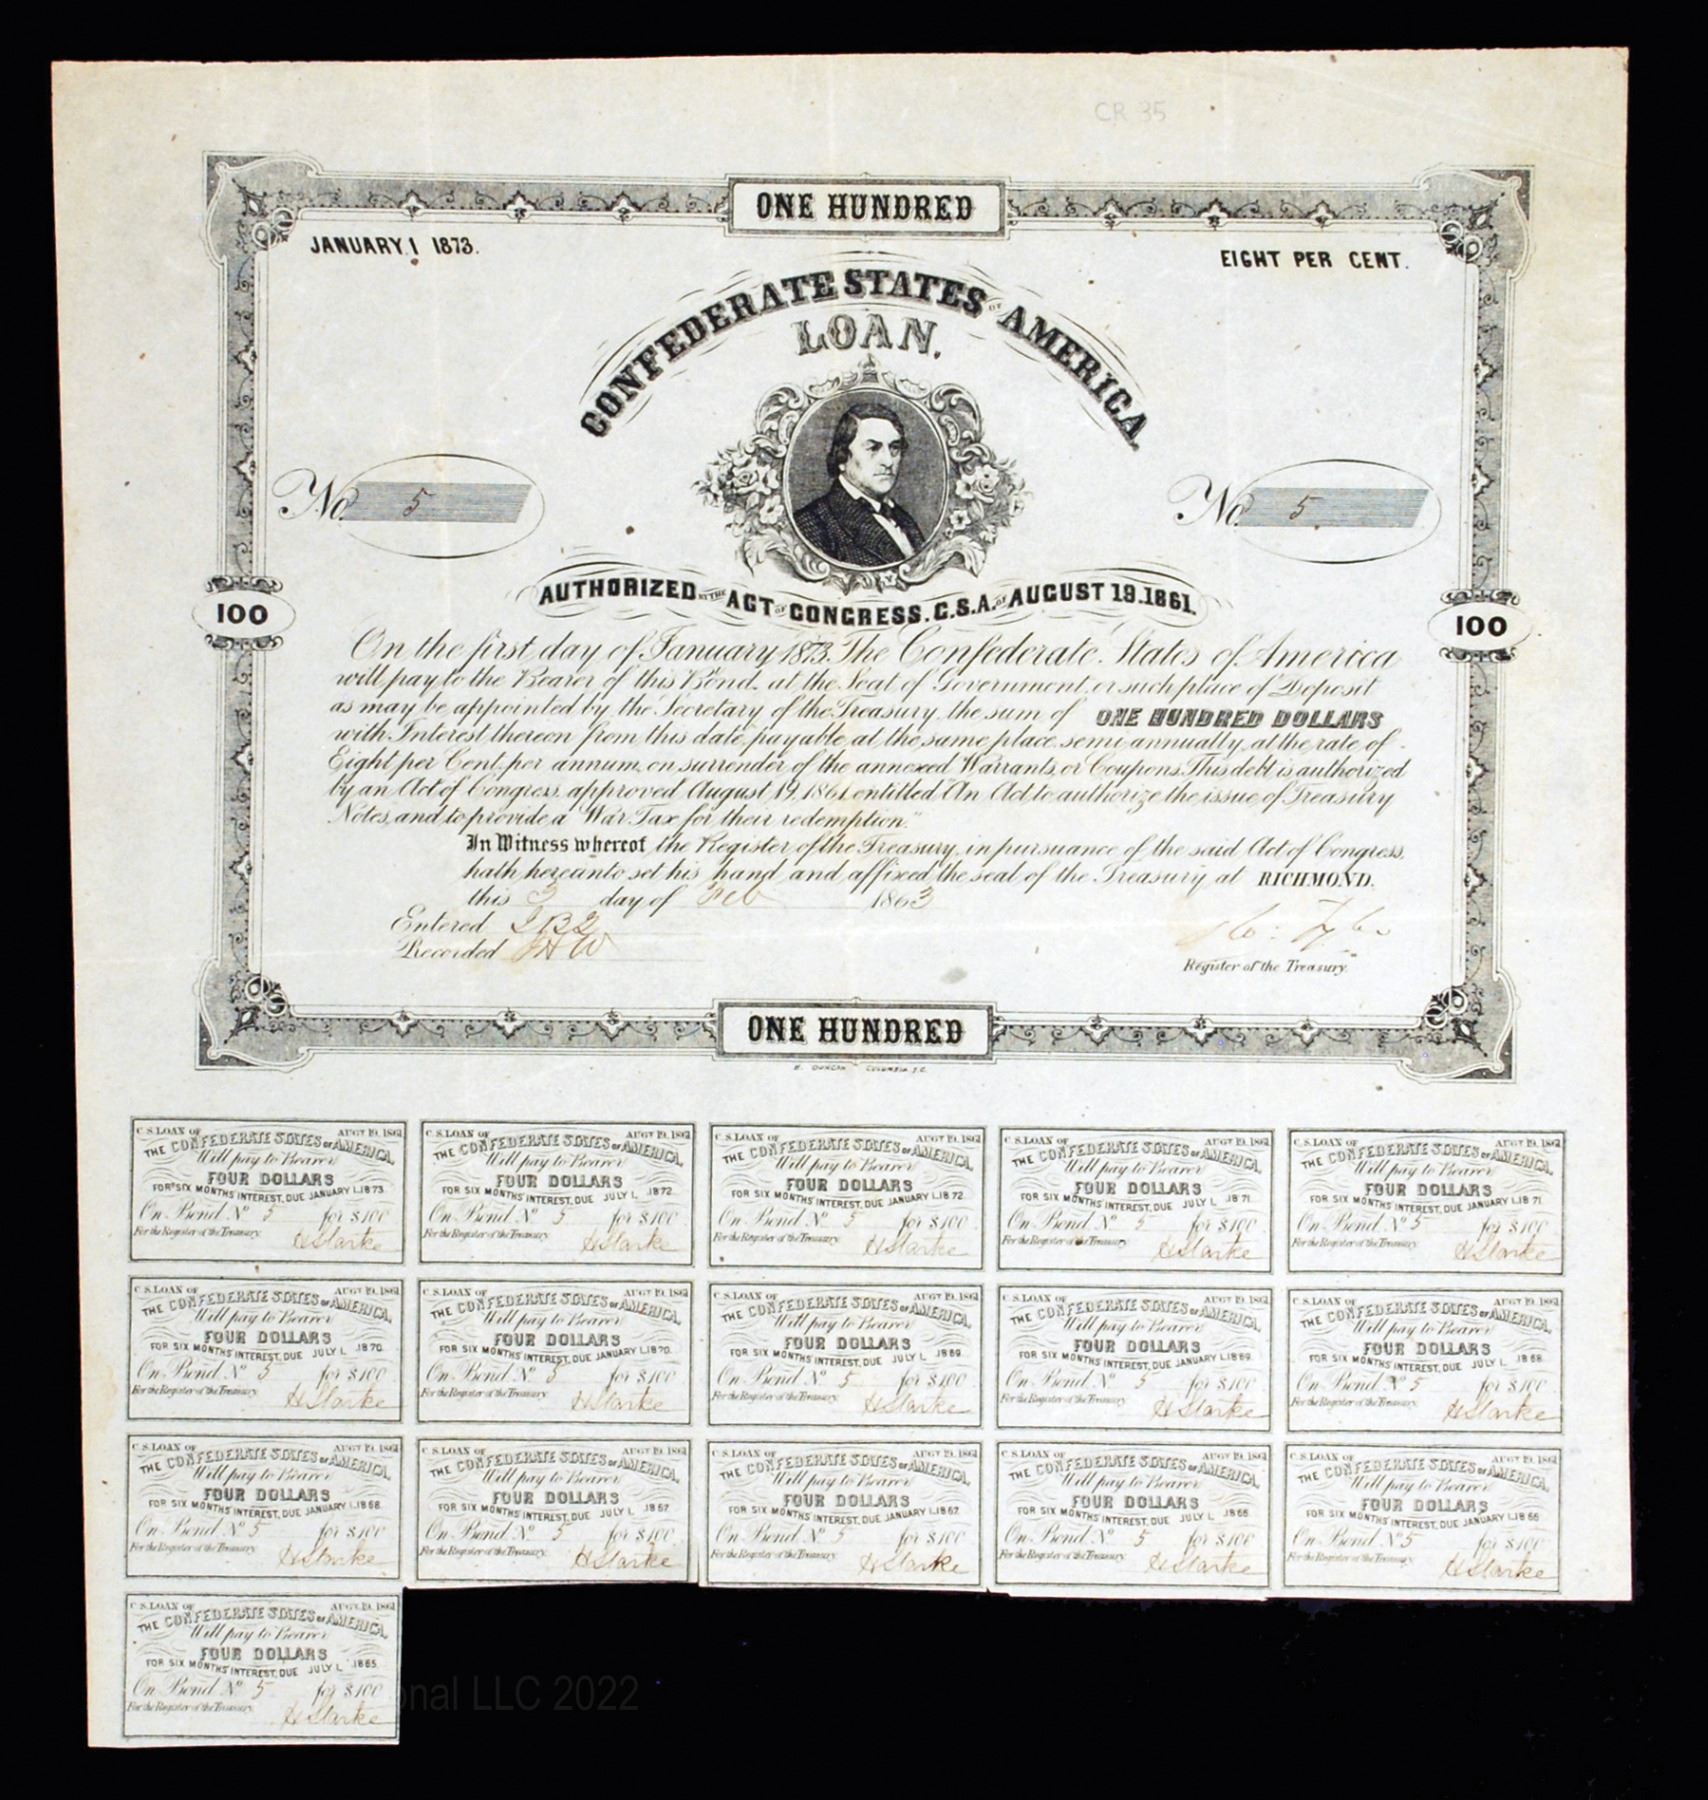 CR 35
ONE HUNDRED
JANUARY 1 1873.
EIGHT PER CENT.
CONFEDERATE STATES OF AMERICA
LOAN.
No. 5
No. 5
AUTHORIZED BY THE ACT OF CONGRESS. C.S.A. OF AUGUST 19.1861.
100
100
On the first day of January 1873. The Confederate States of America
will pay to the Bearer of this Bond at the Seat of Government, or such place of Deposit
as may be appointed by the Secretary of the Treasury, the sum of ONE HUNDRED DOLLARS
with Interest thereon from this date, payable at the same place semi-annually, at the rate of
Eight per Cent. per annum, on surrender of the annexed Warrants or Coupons. This debt is authorized
by an Act of Congress, approved August 19, 1861, entitled "An Act to authorize the issue of Treasury
Notes, and to provide a War Tax for their redemption."
In Witness whereof, the Register of the Treasury, in pursuance of the said Act of Congress,
hath hereunto set his hand and affixed the seal of the Treasury at RICHMOND.
this 3 day of Feb 1863
Entered
Recorded
Register of the Treasury.
ONE HUNDRED
B. DUNCAN COLUMBIA S.C.
C.S.LOAN OF AUGT 19. 1861
THE CONFEDERATE STATES OF AMERICA.
Will pay to Bearer
FOUR DOLLARS
FOR SIX MONTHS INTEREST, DUE JANUARY 1. 1873.
On Bond No 5 for $100
For the Register of the Treasury.
HStarke
C.S.LOAN OF AUGT 19. 1861
THE CONFEDERATE STATES OF AMERICA.
Will pay to Bearer
FOUR DOLLARS
FOR SIX MONTHS INTEREST, DUE JULY 1. 1872.
On Bond No 5 for $100
For the Register of the Treasury.
HStarke
C.S.LOAN OF AUGT 19. 1861
THE CONFEDERATE STATES OF AMERICA.
Will pay to Bearer
FOUR DOLLARS
FOR SIX MONTHS INTEREST, DUE JANUARY 1. 1872.
On Bond No 5 for $100
For the Register of the Treasury.
HStarke
C.S.LOAN OF AUGT 19. 1861
THE CONFEDERATE STATES OF AMERICA.
Will pay to Bearer
FOUR DOLLARS
FOR SIX MONTHS INTEREST, DUE JULY 1. 1871.
On Bond No 5 for $100
For the Register of the Treasury.
HStarke
C.S.LOAN OF AUGT 19. 1861
THE CONFEDERATE STATES OF AMERICA.
Will pay to Bearer
FOUR DOLLARS
FOR SIX MONTHS INTEREST, DUE JANUARY 1. 1871.
On Bond No 5 for $100
For the Register of the Treasury.
HStarke
C.S.LOAN OF AUGT 19. 1861
THE CONFEDERATE STATES OF AMERICA.
Will pay to Bearer
FOUR DOLLARS
FOR SIX MONTHS INTEREST, DUE JULY 1. 1870.
On Bond No 5 for $100
For the Register of the Treasury.
HStarke
C.S.LOAN OF AUGT 19. 1861
THE CONFEDERATE STATES OF AMERICA.
Will pay to Bearer
FOUR DOLLARS
FOR SIX MONTHS INTEREST, DUE JANUARY 1. 1870.
On Bond No 5 for $100
For the Register of the Treasury.
HStarke
C.S.LOAN OF AUGT 19. 1861
THE CONFEDERATE STATES OF AMERICA.
Will pay to Bearer
FOUR DOLLARS
FOR SIX MONTHS INTEREST, DUE JULY 1. 1869.
On Bond No 5 for $100
For the Register of the Treasury.
HStarke
C.S.LOAN OF AUGT 19. 1861
THE CONFEDERATE STATES OF AMERICA.
Will pay to Bearer
FOUR DOLLARS
FOR SIX MONTHS INTEREST, DUE JANUARY 1. 1869.
On Bond No 5 for $100
For the Register of the Treasury.
HStarke
C.S.LOAN OF AUGT 19. 1861
THE CONFEDERATE STATES OF AMERICA.
Will pay to Bearer
FOUR DOLLARS
FOR SIX MONTHS INTEREST, DUE JULY 1. 1868.
On Bond No 5 for $100
For the Register of the Treasury.
HStarke
C.S.LOAN OF AUGT 19. 1861
THE CONFEDERATE STATES OF AMERICA.
Will pay to Bearer
FOUR DOLLARS
FOR SIX MONTHS INTEREST, DUE JANUARY 1. 1868.
On Bond No 5 for $100
For the Register of the Treasury.
HStarke
C.S.LOAN OF AUGT 19. 1861
THE CONFEDERATE STATES OF AMERICA.
Will pay to Bearer
FOUR DOLLARS
FOR SIX MONTHS INTEREST, DUE JULY 1. 1867.
On Bond No 5 for $100
For the Register of the Treasury.
HStarke
C.S.LOAN OF AUGT 19. 1861
THE CONFEDERATE STATES OF AMERICA.
Will pay to Bearer
FOUR DOLLARS
FOR SIX MONTHS INTEREST, DUE JANUARY 1. 1867.
On Bond No 5 for $100
For the Register of the Treasury.
HStarke
C.S.LOAN OF AUGT 19. 1861
THE CONFEDERATE STATES OF AMERICA.
Will pay to Bearer
FOUR DOLLARS
FOR SIX MONTHS INTEREST, DUE JULY 1. 1866.
On Bond No 5 for $100
For the Register of the Treasury.
HStarke
C.S.LOAN OF AUGT 19. 1861
THE CONFEDERATE STATES OF AMERICA.
Will pay to Bearer
FOUR DOLLARS
FOR SIX MONTHS INTEREST, DUE JANUARY 1. 1866.
On Bond No 5 for $100
For the Register of the Treasury.
HStarke
C.S.LOAN OF AUGT 19. 1861
THE CONFEDERATE STATES OF AMERICA.
Will pay to Bearer
FOUR DOLLARS
FOR SIX MONTHS INTEREST, DUE JULY 1. 1865.
On Bond No 5 for $100
For the Register of the Treasury.
HStarke
onal LLC 2022